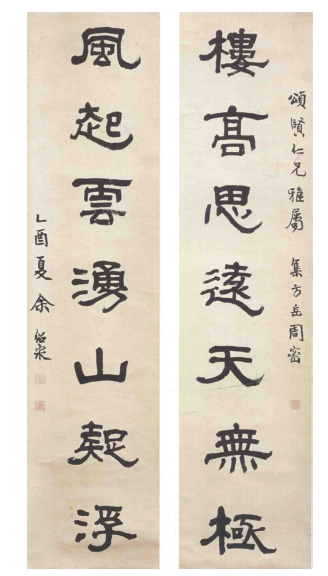 頌賢仁兄雅屬 集方岳周密
樓高思遠天無極
風起雲湧山疑浮
乙酉夏 余紹宋